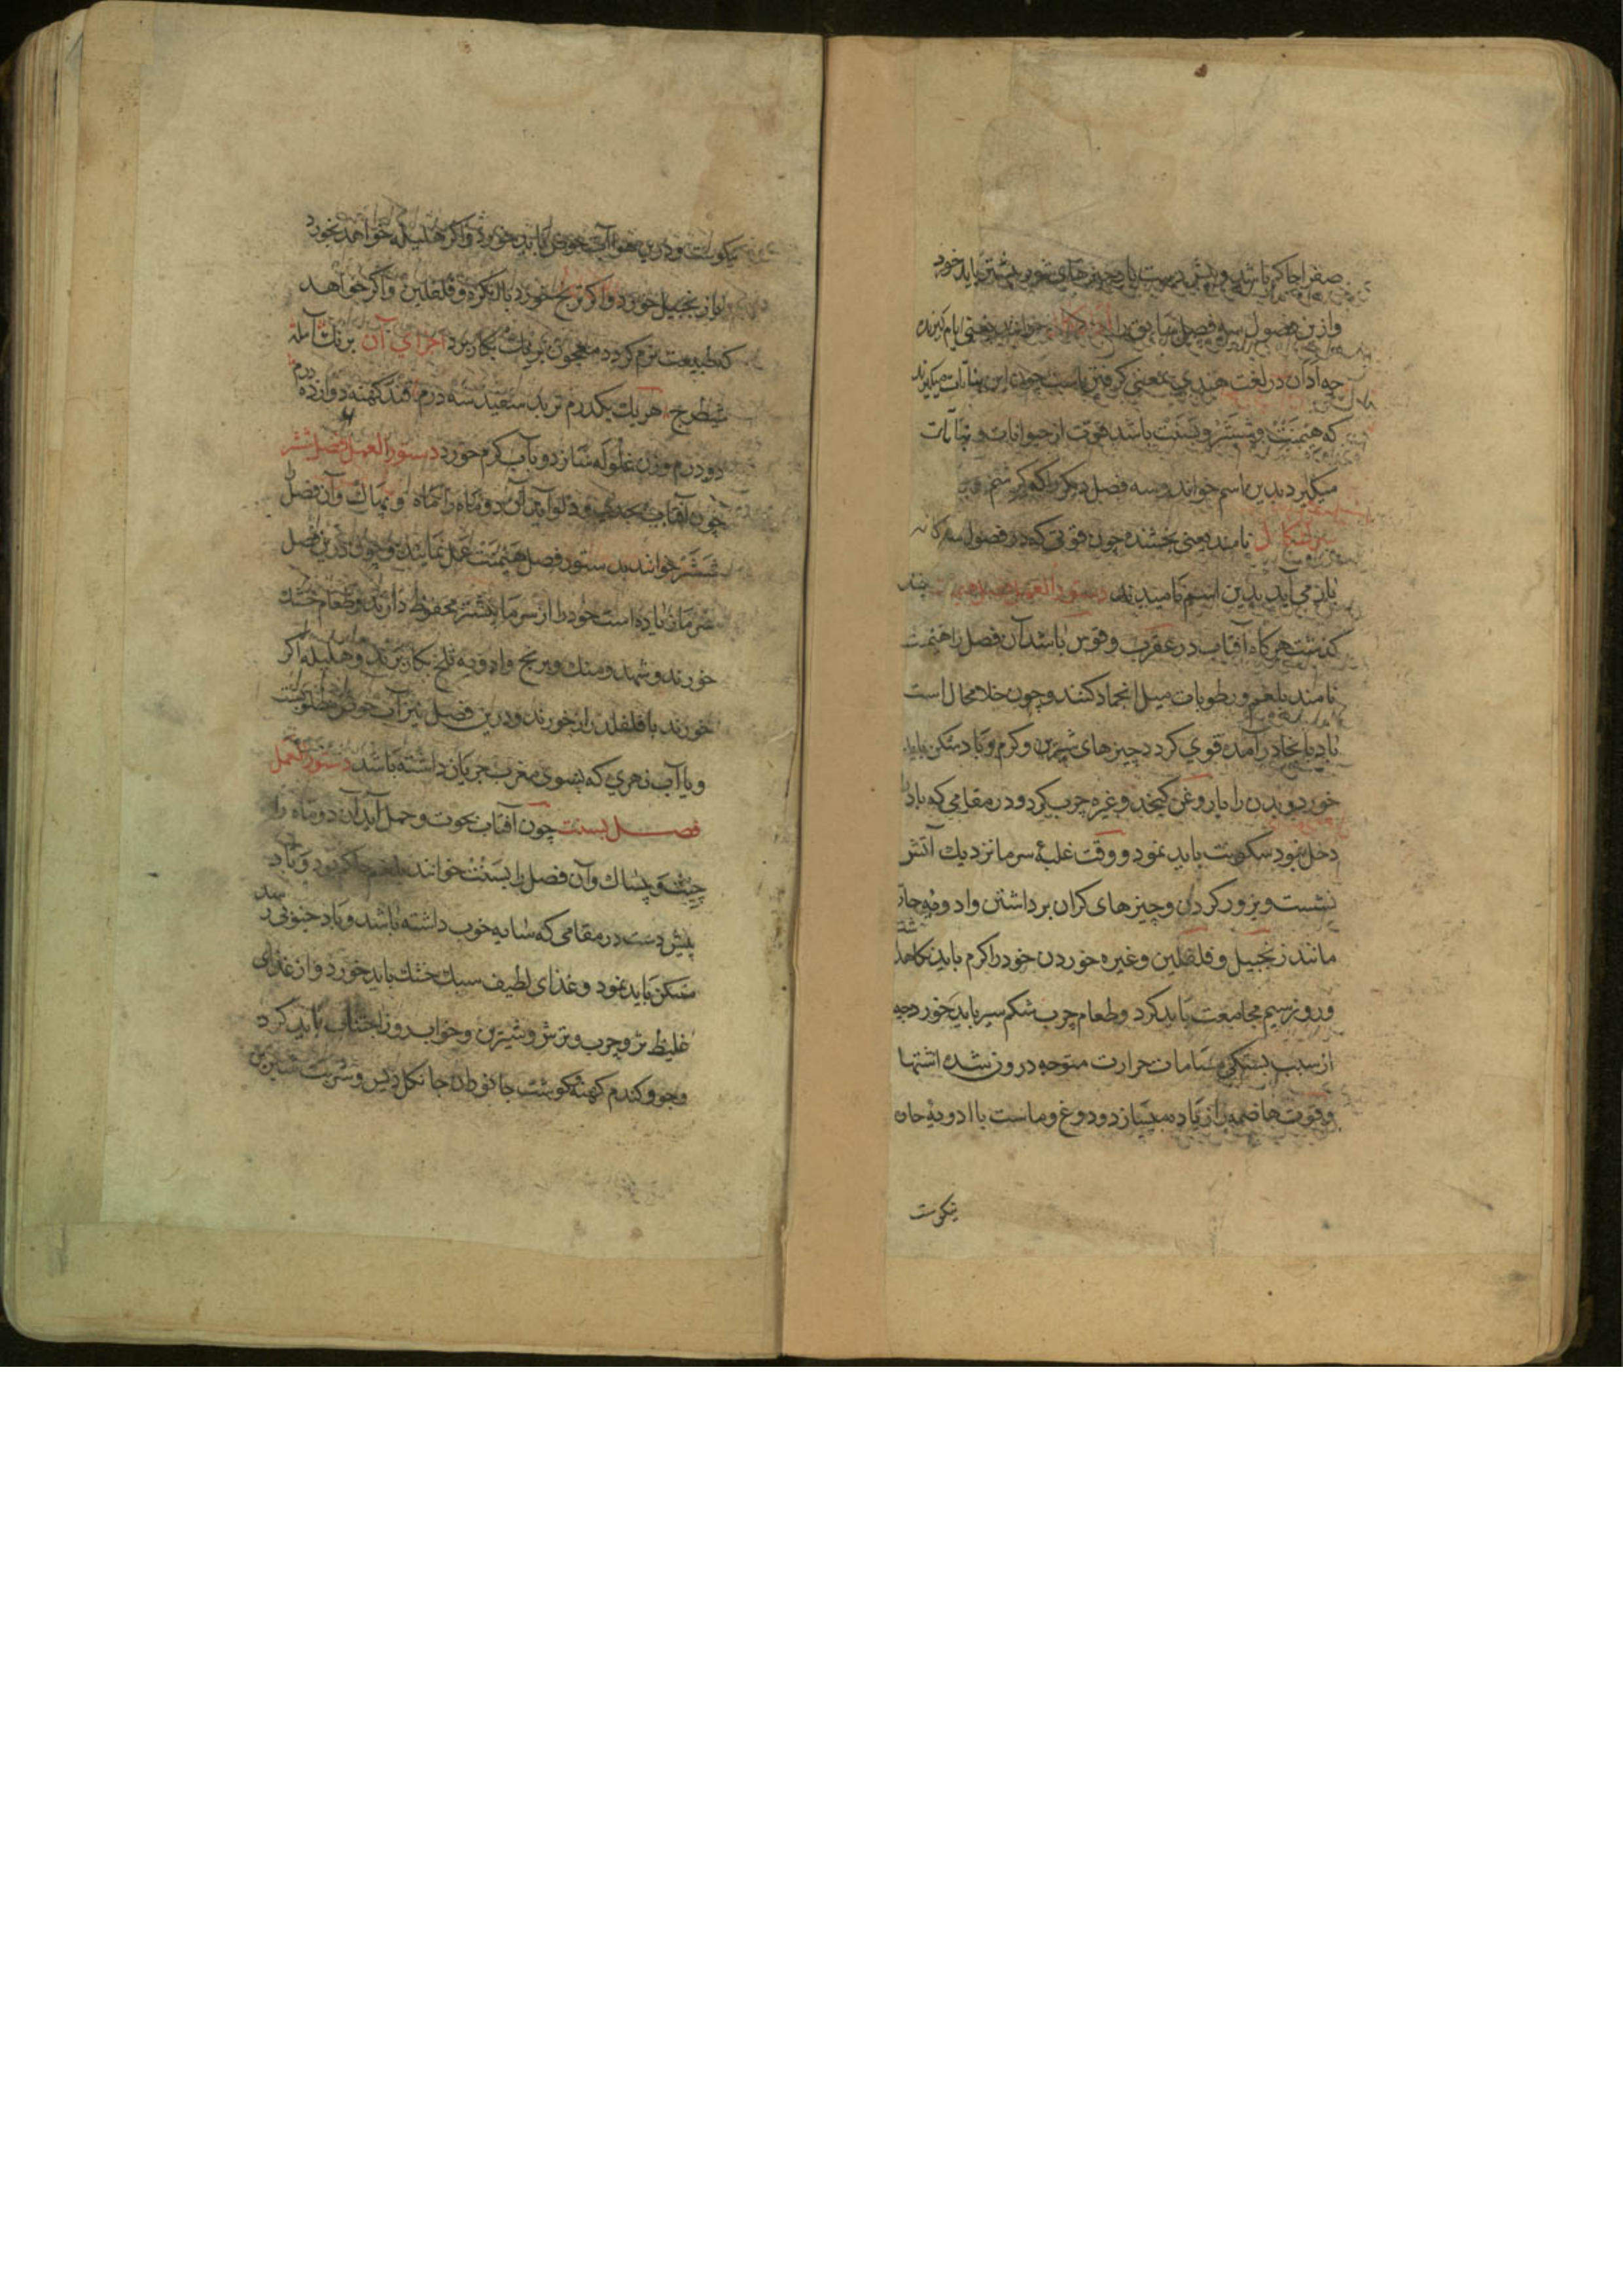 صفرا حاکم باشد و پیش دست باد چیزهای شور بیشتر باید خورد
وازین فصول سه فصل سابق را خوانند یعنی ایام گیرنده
چه آدان در لغت هندی بمعنی گرفتن باشد چون این
که هیمنت و ششر و بسنت باشد قوت از حیوانات و نباتات
میگیرد بدین اسم خوانند و سه فصل دیگر را که
نامند یعنی بخشنده چون قوتی که در فصول
باز می آید بدین اسم نامیدند دستور العمل
گذشت هرگاه آفتاب در عقرب و قوس باشد آن فصل را هیمنت
نامند بلغم و رطوبات میل انجماد کنند و چون خلا محال است
باد بانجا در آمده قوی گردد چیزهای شیرین و گرم و باد شکن باید
خورد و بدن را با روغن کنجد و غیره چرب کرد و در مقامی که باد را
دخل نبود سکونت باید نمود و وقت غلبهٔ سرما نزدیك آتش
نشست و بزور کردن و چیزهای گران برداشتن و ادویه حار
مانند زنجبیل و فلفلین و غیره خوردن خود را گرم باید نگاهداشت
و روز سیم مجامعت باید کرد و طعام چرب شکم سیر باید خورد چه
از سبب بستگی مسامات حرارت متوجه درون شده اشتها
و قوت هاضمه را زیاده میسازد و دوغ و ماست با ادویه حاره
نیکوست
نیکوست و درین هوا آب حوض باید خورد و اگر هلیله خواهد بخورد
با زنجبیل خورد و اگر ترنج خورد با لنکره و فلفلین و اگر خواهد
که طبیعت نرم گردد معجون برنك بکار برد اجزای آن برنك آمله
شیطرج هر یك یکدرم تربد سفید سه درم قند کهنه دوازده درم
دو درم وزن غلوله سازد و بآب گرم خورد دستور العمل فصل ششر
چون آفتاب بجدی و دلو آید آن دو ماه را ماه و پهاك و آن فصل را
ششر خوانند بدستور فصل هیمنت عمل نمایند و چون درین فصل
سرما زیاده است خود را از سرما بیشتر محفوظ دارند و طعام خشك
خورند و شهد و منك و برنج و ادویه تلخ بکار برند و هلیله اگر
خورند با فلفل دراز خورند و درین فصل نیز آب حوض مطلوبست
و یا آب نهری که بسوی مغرب جریان داشته باشد دستور العمل
فصل بسنت چون آفتاب بحوت و حمل آید آن دو ماه را
چیت و بساك و آن فصل را بسنت خوانند بلغم حاکم بود و باد
پیش دست در مقامی که سایه خوب داشته باشد و باد جنوبی رسد
مسکن باید نمود و غذای لطیف سبك خشك باید خورد و از غذای
غلیظ تر و چرب و ترش و شیرین و خواب روز اجتناب باید کرد
و جو و گندم کهنه گوشت جانوران جانکل دیس و شربت شیرین